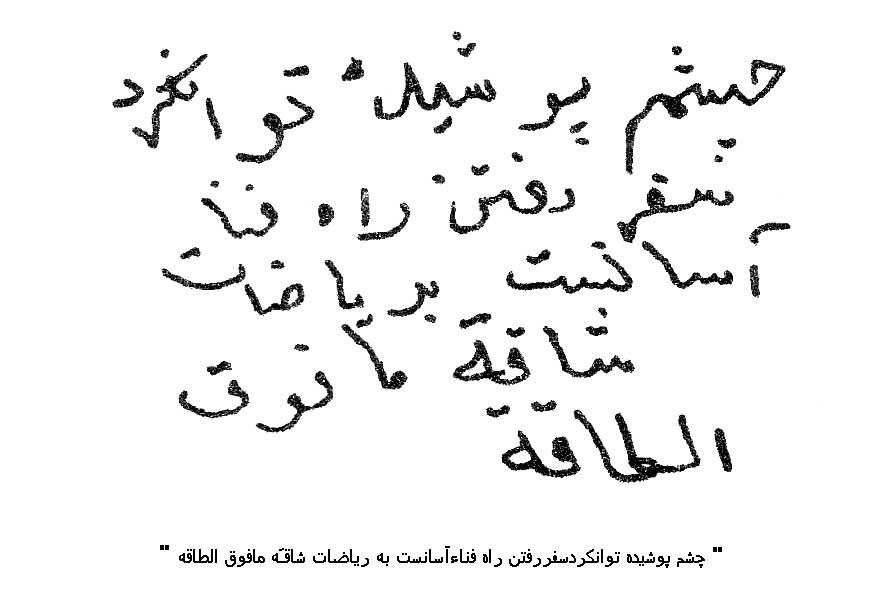 چشم پوشیدہ توانکرد
سفر رفتن راہ فنا
آسانست بریاضات
شاقة مافوق
الطاقة
" چشم پوشیده توانکردسفررفتن راه فناءآسانست به ریاضات شاقـّه مافوق الطاقه "